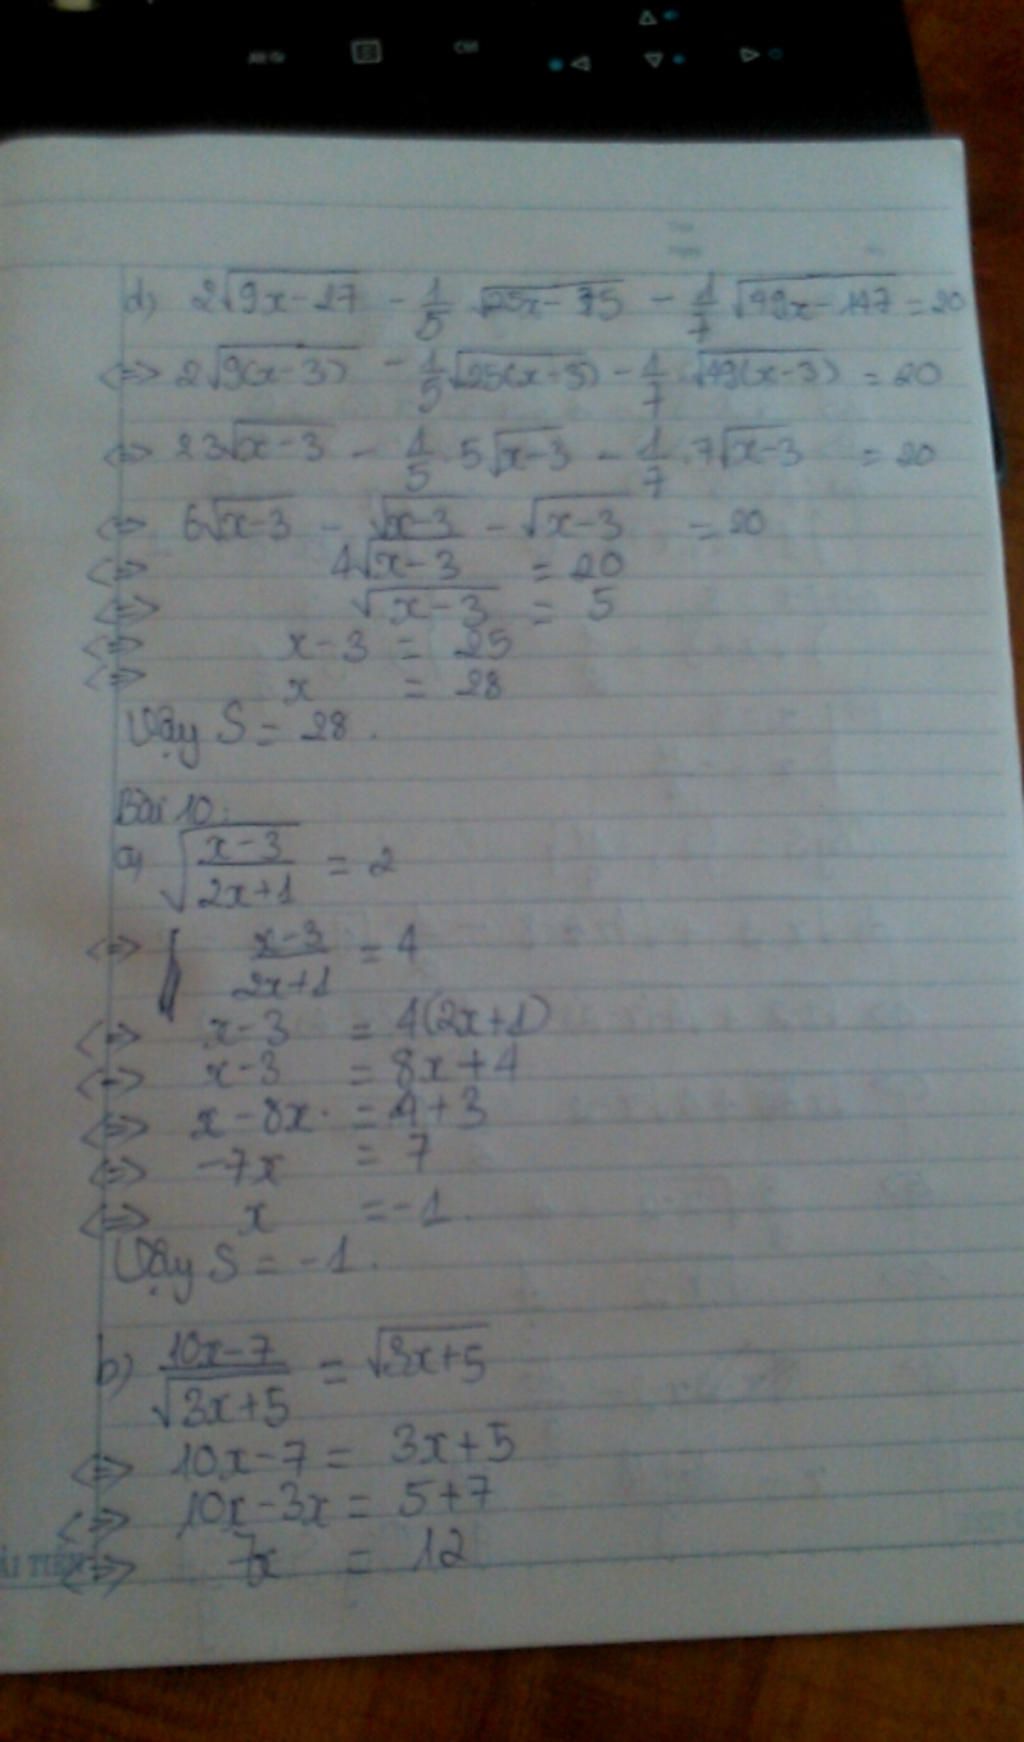 Alt Gr Ctrl
d) 2√(9x-27) - 1/5 √(25x-75) - 1/7 √(49x-147) = 20
<=> 2√(9(x-3)) - 1/5 √(25(x-3)) - 1/7 √(49(x-3)) = 20
<=> 2 3√(x-3) - 1/5 . 5√(x-3) - 1/7 . 7√(x-3) = 20
<=> 6√(x-3) - √(x-3) - √(x-3) = 20
<=> 4√(x-3) = 20
<=> √(x-3) = 5
<=> x-3 = 25
<=> x = 28
Vậy S = 28.
Bài 10:
a) √((x-3)/(2x+1)) = 2
<=> (x-3)/(2x+1) = 4
<=> x-3 = 4(2x+1)
<=> x-3 = 8x+4
<=> x-8x. = 4+3
<=> -7x = 7
<=> x = -1.
Vậy S = -1.
b) (10x-7)/√(3x+5) = √(3x+5)
<=> 10x-7 = 3x+5
<=> 10x-3x = 5+7
<=> 7x = 12